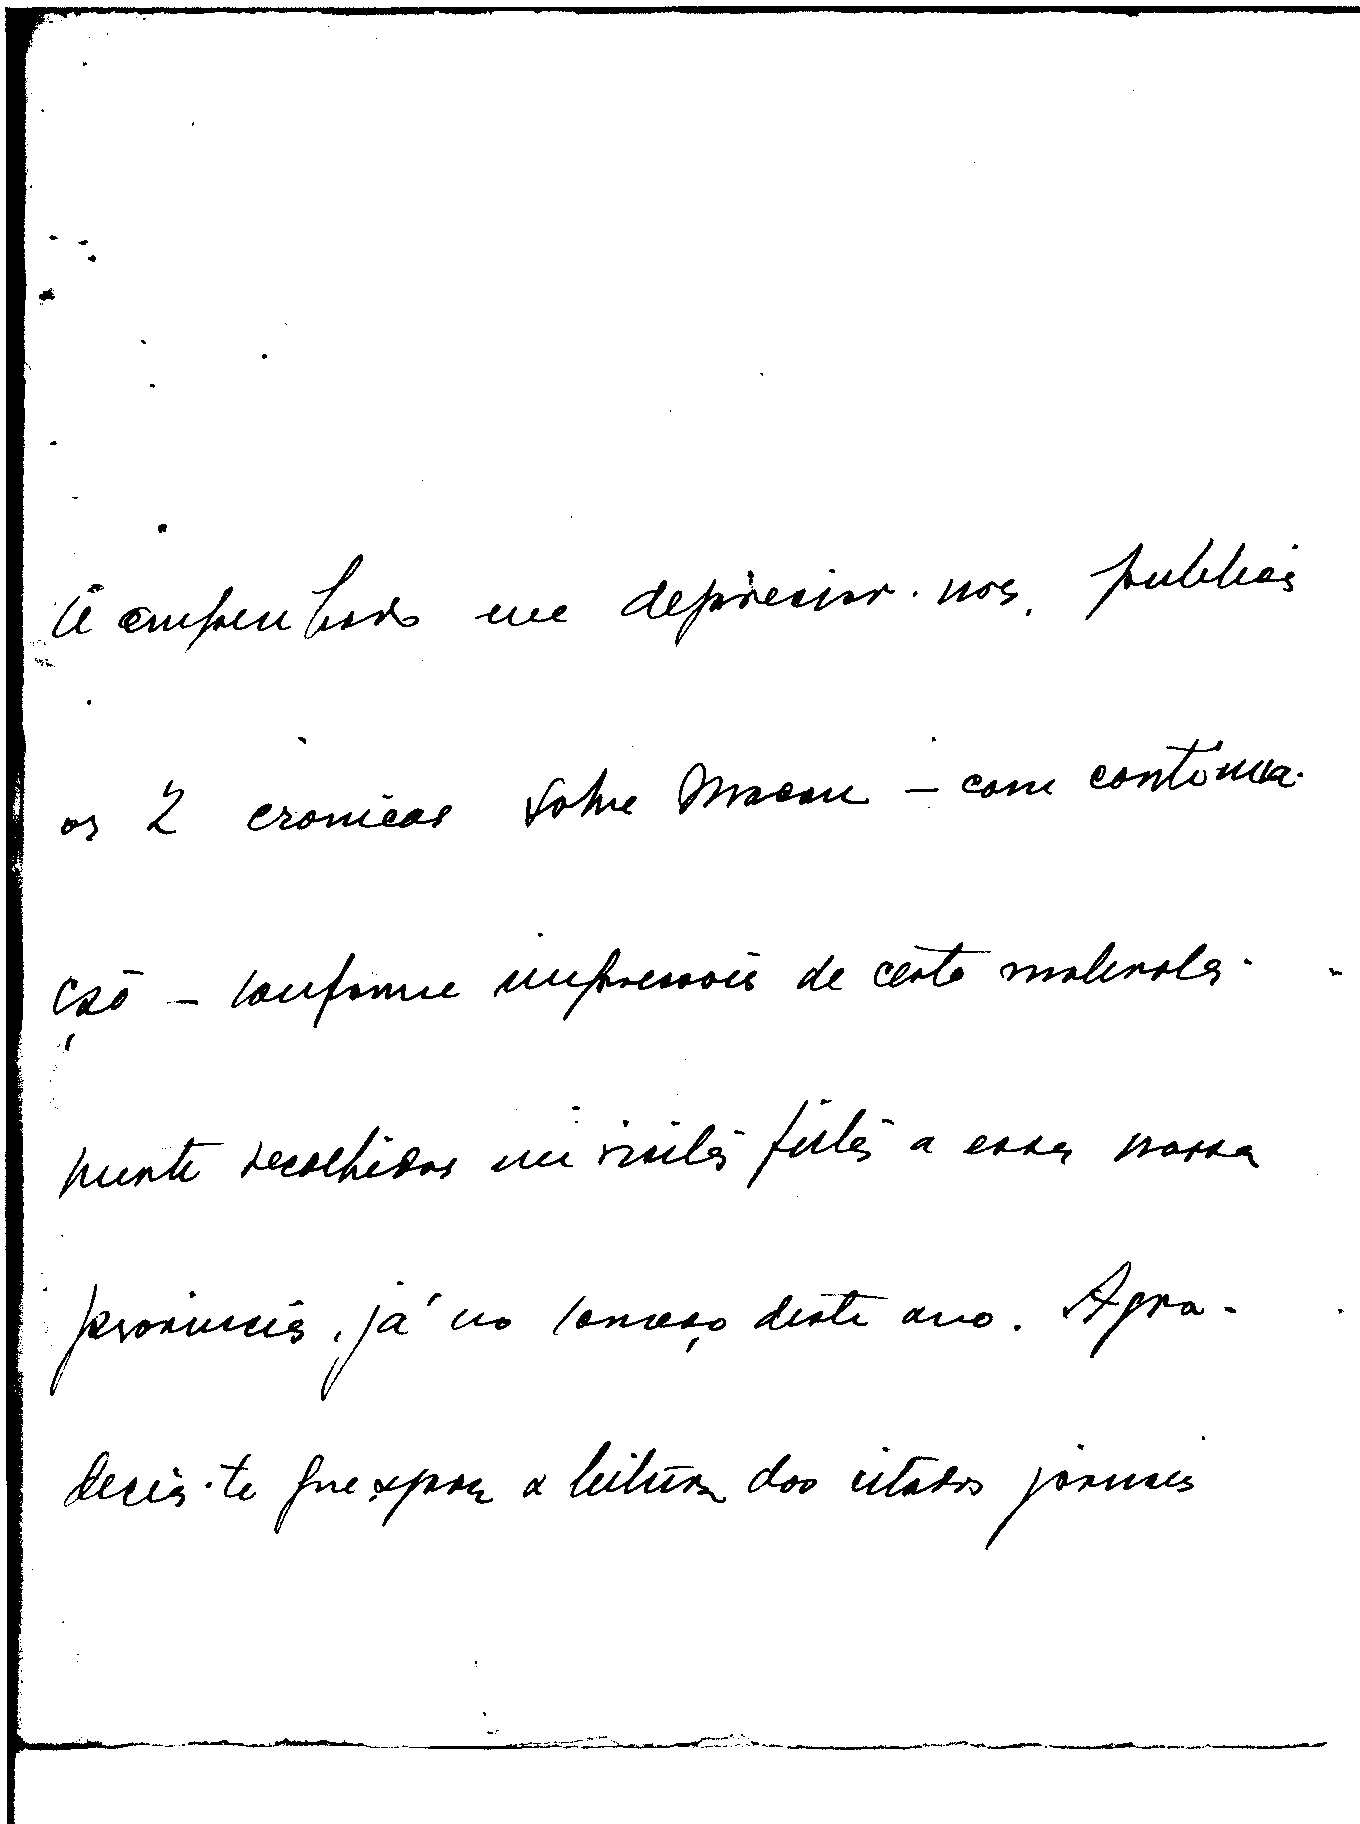 empenhado em depreciar-nos, publica
as 2 cronicas sobre Macau – com continua-
ção – conforme impressões de certo malevola-
mente recolhidas em visita feita a essa nossa
provincia, já no começo deste ano. Agra-
decia-te que após a leitura dos citados jornais